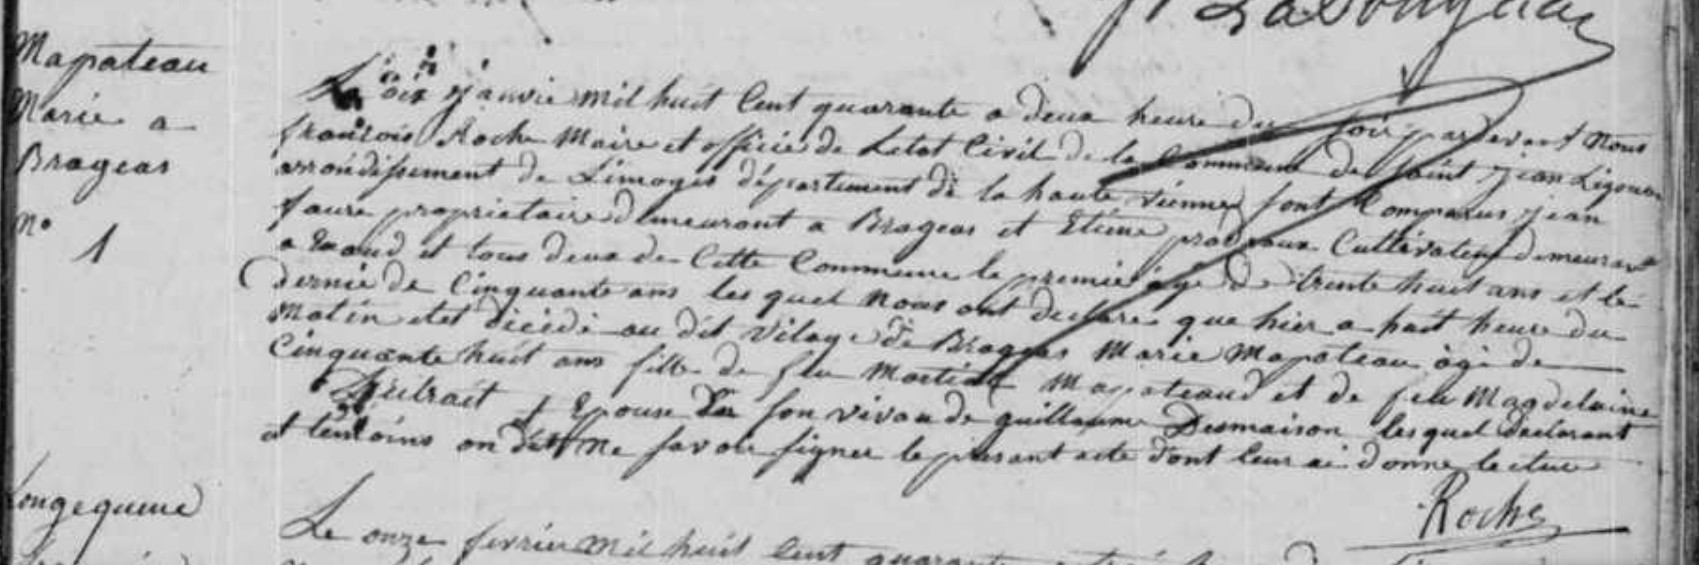 Mapateau
Marie a
Brageas
N° 1
Le dix janvie mil huit Cent quarante a deux heure du soir pardevant Nous
françois Roche Maire et officie de Letat Civil de la Commune de Saint jean Ligoure
arrondissement de Limoges département de la haute vienne sont Comparus jean
faure proprietaire demeurant a Brageas et Etiene Cultivateur demeurant
a et tous deux de Cette Commune le premie âge de trente huit ans et le
dernie de Cinquante ans les quel Nous ont declare que hier a huit heure du
Matin etet décédé au dit vilage de Brageas Marie Mapateau âgé de
Cinquante huit ans fille de feu Martial Mapateaud et de feu Magdelaine
Epouse de son vivan de guillaume Desmaison lesquel declarant
et temoins on dit ne savoir signer le present acte dont leur ai donne lecture
Roche
Longequeue
Le onze fevrier mil huit Cent quarante